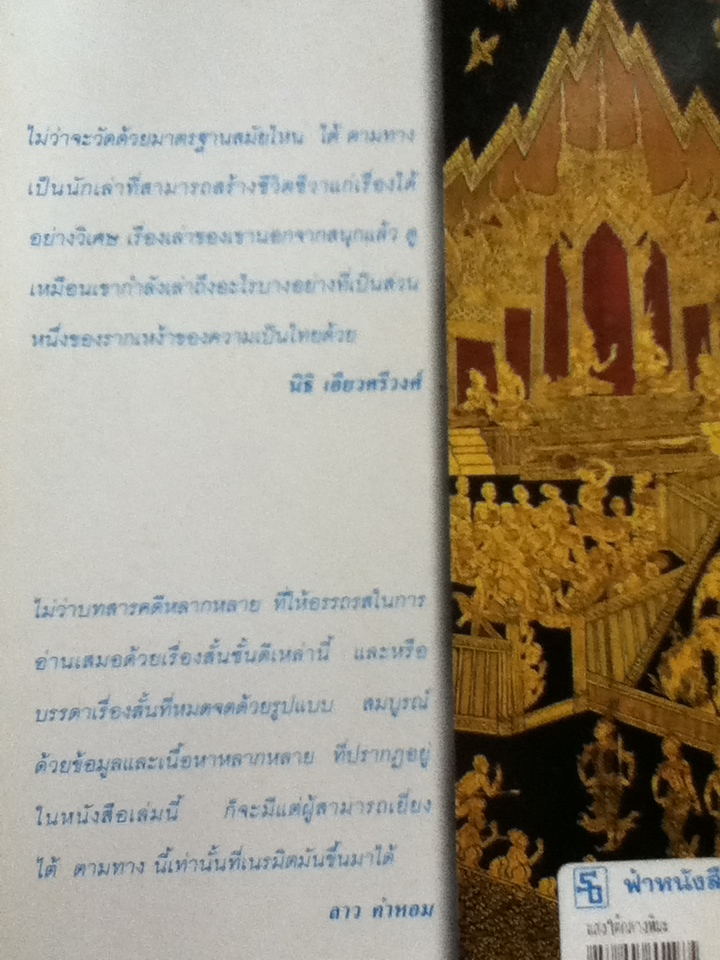 ไม่ว่าจะวัดด้วยมาตรฐานสมัยไหน ไต้ ตามทาง
เป็นนักเล่าที่สามารถสร้างชีวิตชีวาแก่เรื่องได้
อย่างวิเศษ เรื่องเล่าของเขานอกจากสนุกแล้ว ดู
เหมือนเขากำลังเล่าถึงอะไรบางอย่างที่เป็นส่วน
หนึ่งของรากเหง้าของความเป็นไทยด้วย
นิธิ เอียวศรีวงศ์
ไม่ว่าบทสารคดีหลากหลาย ที่ให้อรรถรสในการ
อ่านเสมอด้วยเรื่องสั้นชั้นดีเหล่านี้ และหรือ
บรรดาเรื่องสั้นที่หมดจดด้วยรูปแบบ สมบูรณ์
ด้วยข้อมูลและเนื้อหาหลากหลาย ที่ปรากฏอยู่
ในหนังสือเล่มนี้ ก็จะมีแต่ผู้สามารถเยี่ยง
ไต้ ตามทาง นี้เท่านั้นที่เนรมิตมันขึ้นมาได้
ลาว คำหอม
ฟ้าหนังสื